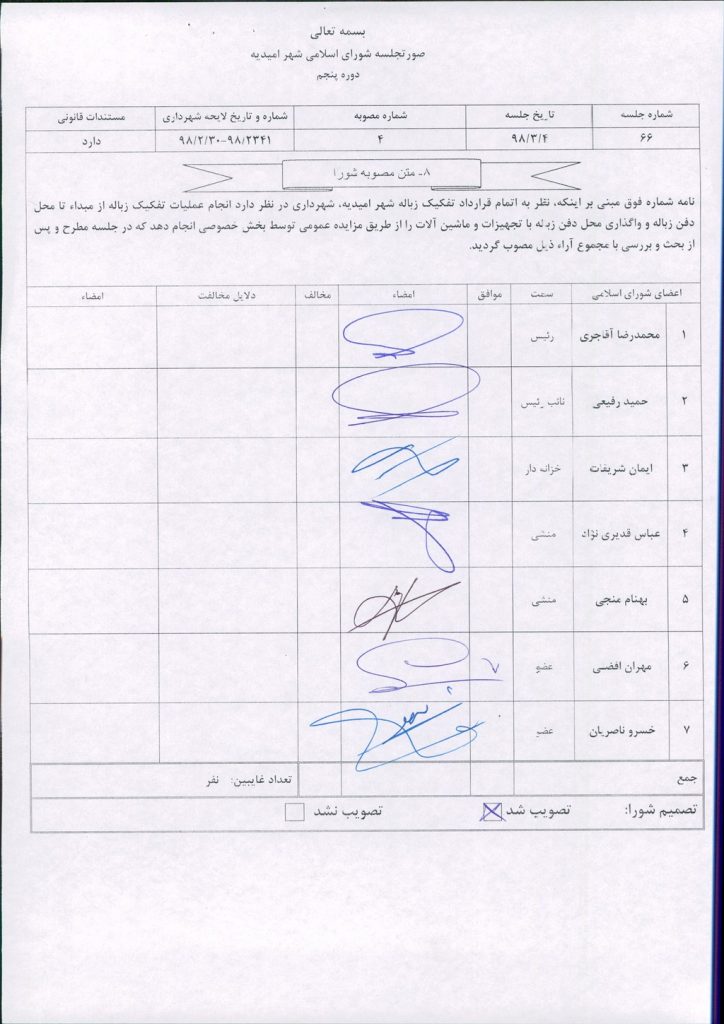 بسمه تعالی
صورتجلسه شورای اسلامی شهر امیدیه
دوره پنجم
شماره جلسه تاریخ جلسه شماره مصوبه شماره و تاریخ لایحه شهرداری مستندات قانونی
۶۶ ۹۸/۳/۴ ۴ ۹۸/۲/۳۰-۹۸/۲۳۴۱ دارد
۸- متن مصوبه شورا
نامه شماره فوق مبنی بر اینکه، نظر به اتمام قرارداد تفکیک زباله شهر امیدیه، شهرداری در نظر دارد انجام عملیات تفکیک زباله از مبداء تا محل
دفن زباله و واگذاری محل دفن زباله با تجهیزات و ماشین آلات را از طریق مزایده عمومی توسط بخش خصوصی انجام دهد که در جلسه مطرح و پس
از بحث و بررسی با مجموع آراء ذیل مصوب گردید.
اعضای شورای اسلامی سمت موافق امضاء مخالف دلایل مخالفت امضاء
۱ محمدرضا آقاجری رئیس
۲ حمید رفیعی نائب رئیس
۳ ایمان شریفات خزانه دار
۴ عباس قدیری نژاد منشی
۵ بهنام منجی منشی
۶ مهران افضی عضو
۷ خسرو ناصریان عضو
جمع تعداد غایبین: نفر
تصمیم شورا: تصویب شد تصویب نشد